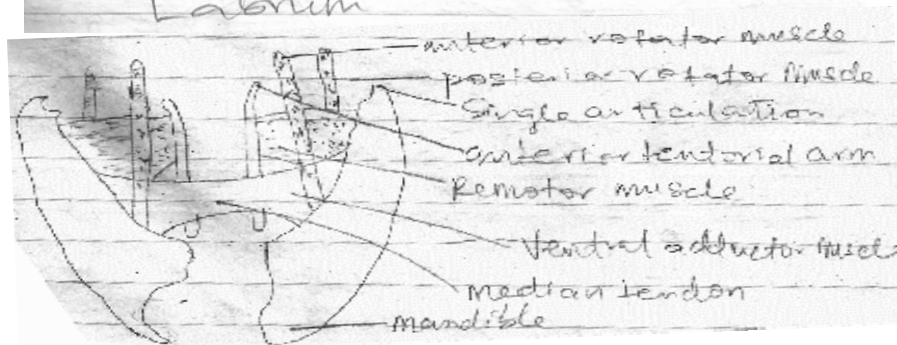 Labrum
anterior rotator muscle
posterior rotator muscle
Single articulation
anterior tentorial arm
Remotor muscle
Ventral adductor muscle
median tendon
mandible